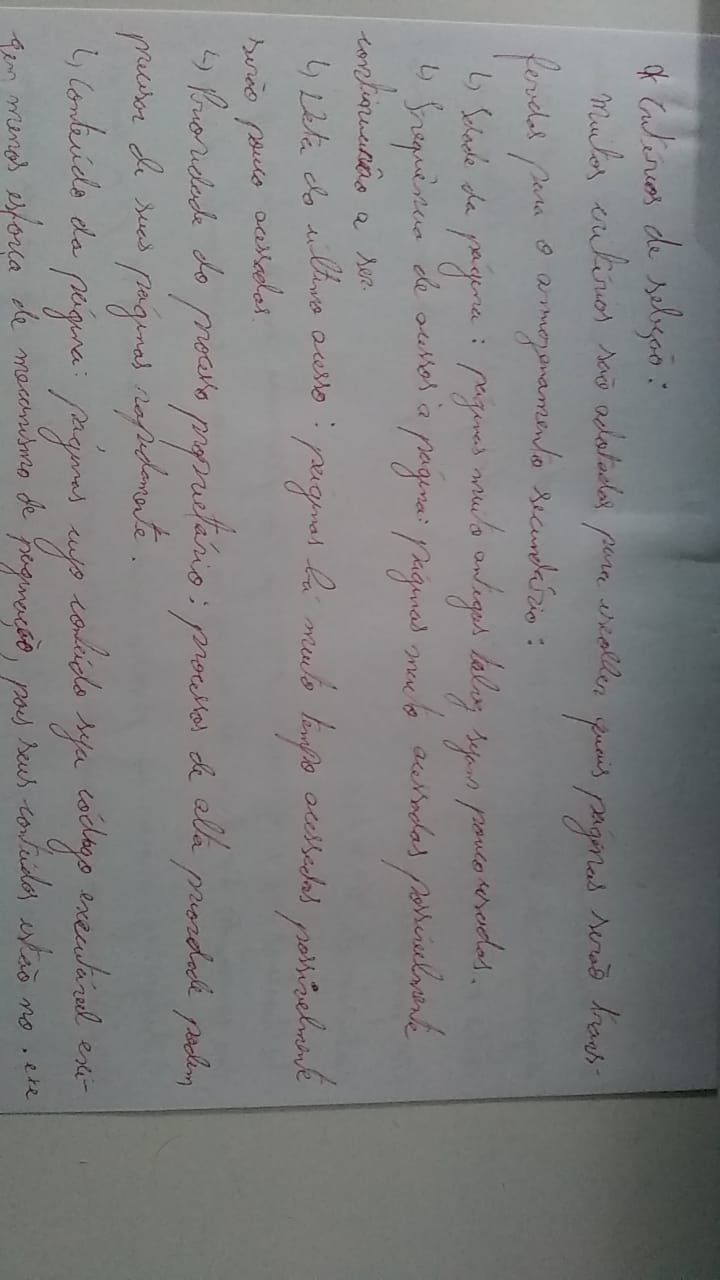 * Critérios de seleção:
Muitos critérios são adotados para escolher quais páginas serão trans-
feridas para o armazenamento secundário:
↳ Idade da página: páginas muito antigas talvez sejam pouco usadas.
↳ Frequência de acessos à página: páginas muito acessadas possivelmente
continuarão a ser.
↳ Data do último acesso: páginas há muito tempo acessadas possivelmente
serão pouco acessadas.
↳ Prioridade do processo proprietário: processos de alta prioridade podem
precisar de suas páginas rapidamente.
↳ Conteúdo da página: páginas cujo conteúdo seja código executável exi-
gem menos esforço de mecanismo de paginação, pois seus conteúdos estão no .exe